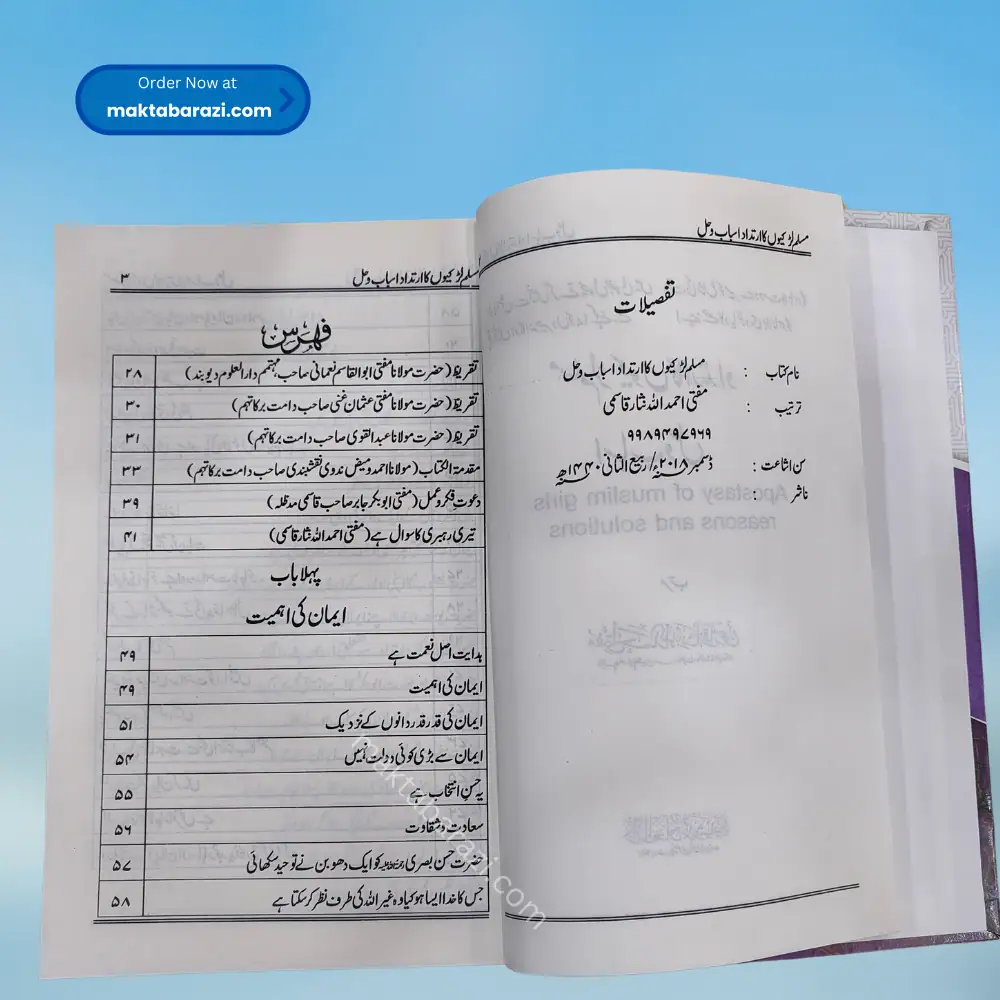 Order Now at
maktabarazi.com
مسلم لڑکیوں کا ارتداد اسباب و حل
تفصیلات
نام کتاب : مسلم لڑکیوں کا ارتداد اسباب و حل
ترتیب : مفتی احمد اللہ نثار قاسمی
۹۹۸۹۴۹۷۹۶۹
سن اشاعت : ڈسمبر ۲۰۱۸ء/ ربیع الثانی ۱۴۴۰ھ
ناشر :
Apostasy of muslim girls
reasons and solutions
مسلم لڑکیوں کا ارتداد اسباب و حل ۳
فہرس
تقریظ (حضرت مولانا مفتی ابوالقاسم نعمانی صاحب، مہتمم دارالعلوم دیوبند) ۲۸
تقریظ (حضرت مولانا مفتی عثمان غنی صاحب دامت برکاتہم) ۳۰
تقریظ (حضرت مولانا عبدالقوی صاحب دامت برکاتہم) ۳۱
مقدمۃ الکتاب (مولانا احمد ومیض ندوی نقشبندی صاحب دامت برکاتہم) ۳۳
دعوت فکر وعمل (مفتی ابوبکر جابر صاحب قاسمی مدظلہ) ۳۹
تیری رہبری کا سوال ہے (مفتی احمد اللہ نثار قاسمی) ۴۱
پہلا باب
ایمان کی اہمیت
ہدایت اصل نعمت ہے ۴۹
ایمان کی اہمیت ۴۹
ایمان کی قدر قدر دانوں کے نزدیک ۵۱
ایمان سے بڑی کوئی دولت نہیں ۵۴
یہ حسن انتخاب ہے ۵۵
سعادت وشقاوت ۵۶
حضرت حسن بصری رحمۃ اللہ علیہ کو ایک دھوبن نے توحید سکھائی ۵۷
جس کا خدا ایسا ہو کیا وہ غیر اللہ کی طرف نظر کر سکتا ہے ۵۸
maktabarazi.com